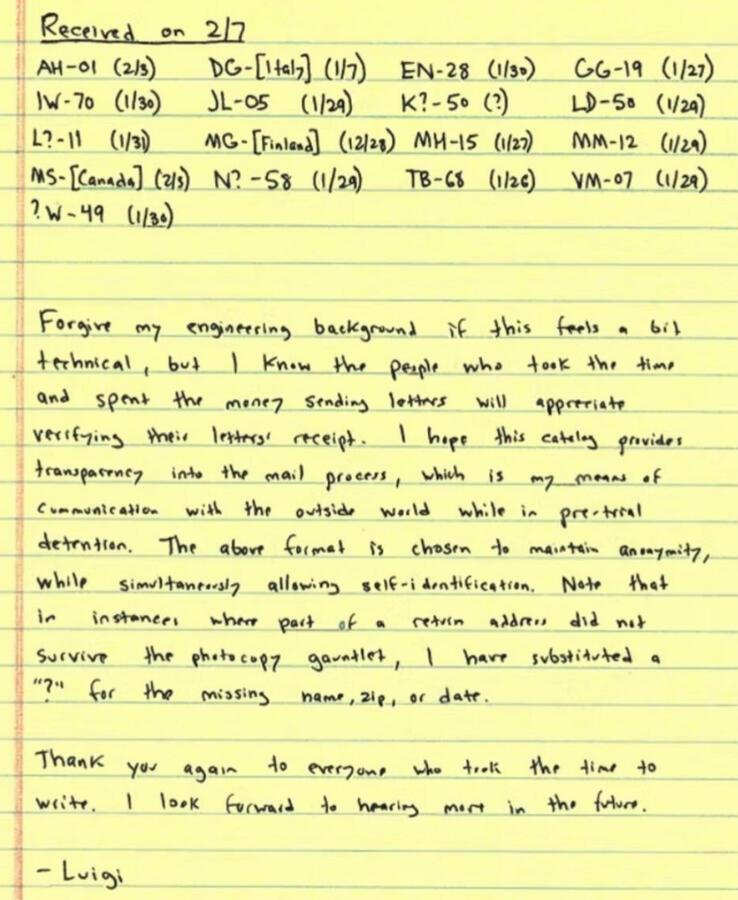 Received on 2/7
AH-01 (2/3) DG-[Italy] (1/7) EN-28 (1/30) GG-19 (1/27)
IW-70 (1/30) JL-05 (1/29) K?-50 (?) LD-50 (1/29)
L?-11 (1/31) MG-[Finland] (12/28) MH-15 (1/27) MM-12 (1/29)
MS-[Canada] (2/3) N?-58 (1/29) TB-68 (1/26) VM-07 (1/29)
?W-49 (1/30)
Forgive my engineering background if this feels a bit
technical, but I know the people who took the time
and spent the money sending letters will appreciate
verifying their letters' receipt. I hope this catalog provides
transparency into the mail process, which is my means of
communication with the outside world while in pre-trial
detention. The above format is chosen to maintain anonymity,
while simultaneously allowing self-identification. Note that
in instances where part of a return address did not
survive the photocopy gauntlet, I have substituted a
"?" for the missing name, zip, or date.
Thank you again to everyone who took the time to
write. I look forward to hearing more in the future.
- Luigi